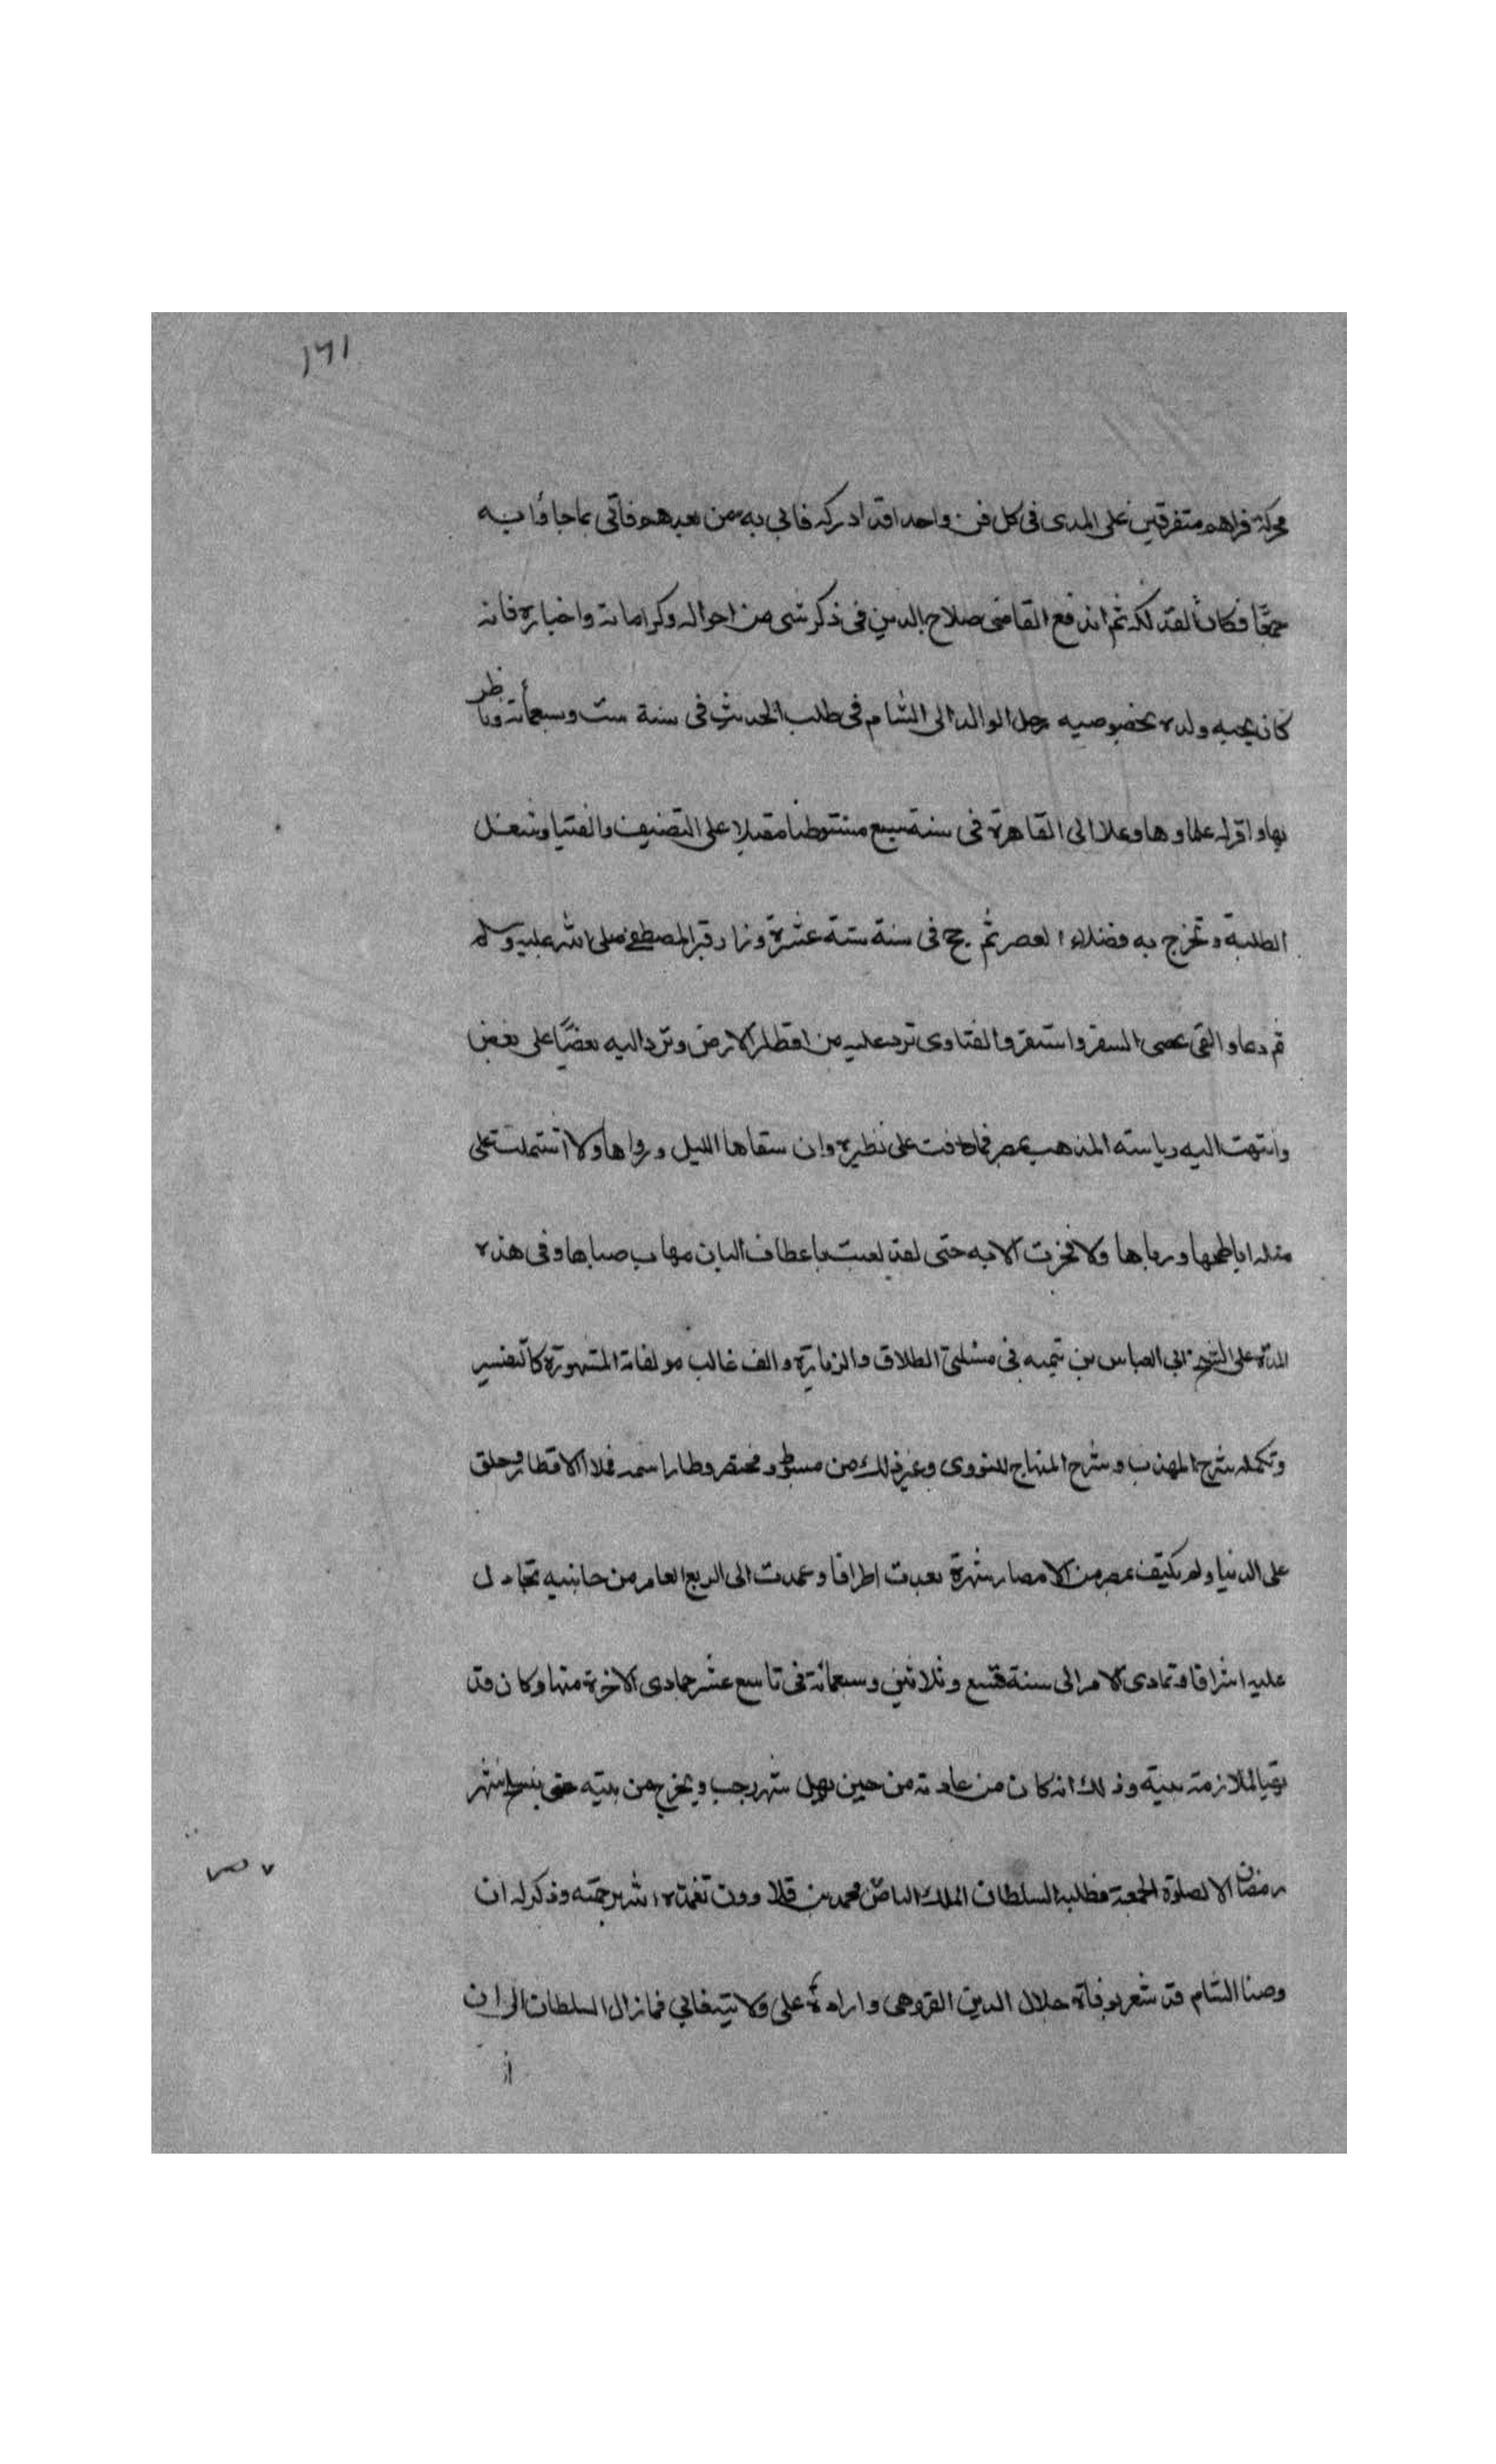 ١٦١
فراهم متفرقين على المدى فى كل فن واحدا قد ادركه فاتى به من بعدهم فاتى بما جاؤا به
جمعًا فكان القد لكه ثم اندفع القاضى صلاح الدين فى ذكر شى من احواله وكراماته واخباره فانه
كان يحبه ولده بخصوصيه رحل الوالد الى الشام فى طلب الحديث فى سنة ست وسبعمأته وناظر
بها واقر له علماوها وعلا الى القاهرة فى سنة سبع مستوطنا مقبلا على التصنيف والفتيا وشغل
الطلبة وتخرج به فضلاء العصر ثم حج فى سنة ستة عشرة وزار قبر المصطفى صلى الله عليه وسلم
ثم دعا والقى عصى السفر واستقر والفتاوى ترد عليه من اقطار الارض وترد اليه بعضًا على بعض
وانتهت اليه رياسته المذهب بمصر فما على نظيره وان سقاها النيل ورواها ولا اشتملت على
مثله اباطحها ورباها ولا فخرت الا به حتى لقد لعبت باعطاف البان مهاب صباها وفى هذه
المدة على الشيخ ابى العباس بن تيميه فى مسئلتى الطلاق والزيارة والف غالب مولفاته المشهورة كالتفسير
وتكملة شرح المهذب وشرح المنهاج للنووى وغير ذلك من مبسوط ومختصر وطار اسمه فملا الاقطار وحلق
على الدنيا ولم يكتف بمصر من الامصار شهرة بعدت اطرافا وعمدت الى الربع العامر من جانبيه تجادل
عليه اشرافا وتمادى الامر الى سنة تسع وثلاثين وسبعمائة فى تاسع عشر جمادى الاخرة منها وكان قد
لملازمة بيته وذلك انه كان من عادته من حين يهل شهر رجب ويخرج من بيته حتى ينسلخ شهر
رمضان الا لصلوة الجمعة فطلبه السلطان الملك الناصر محمد بن قلاوون تغمده الله برحمته وذكر له ان
الشام قد شغر بوفاة جلال الدين القزوينى واراده على ولايته فابى فما زال السلطان الى ان